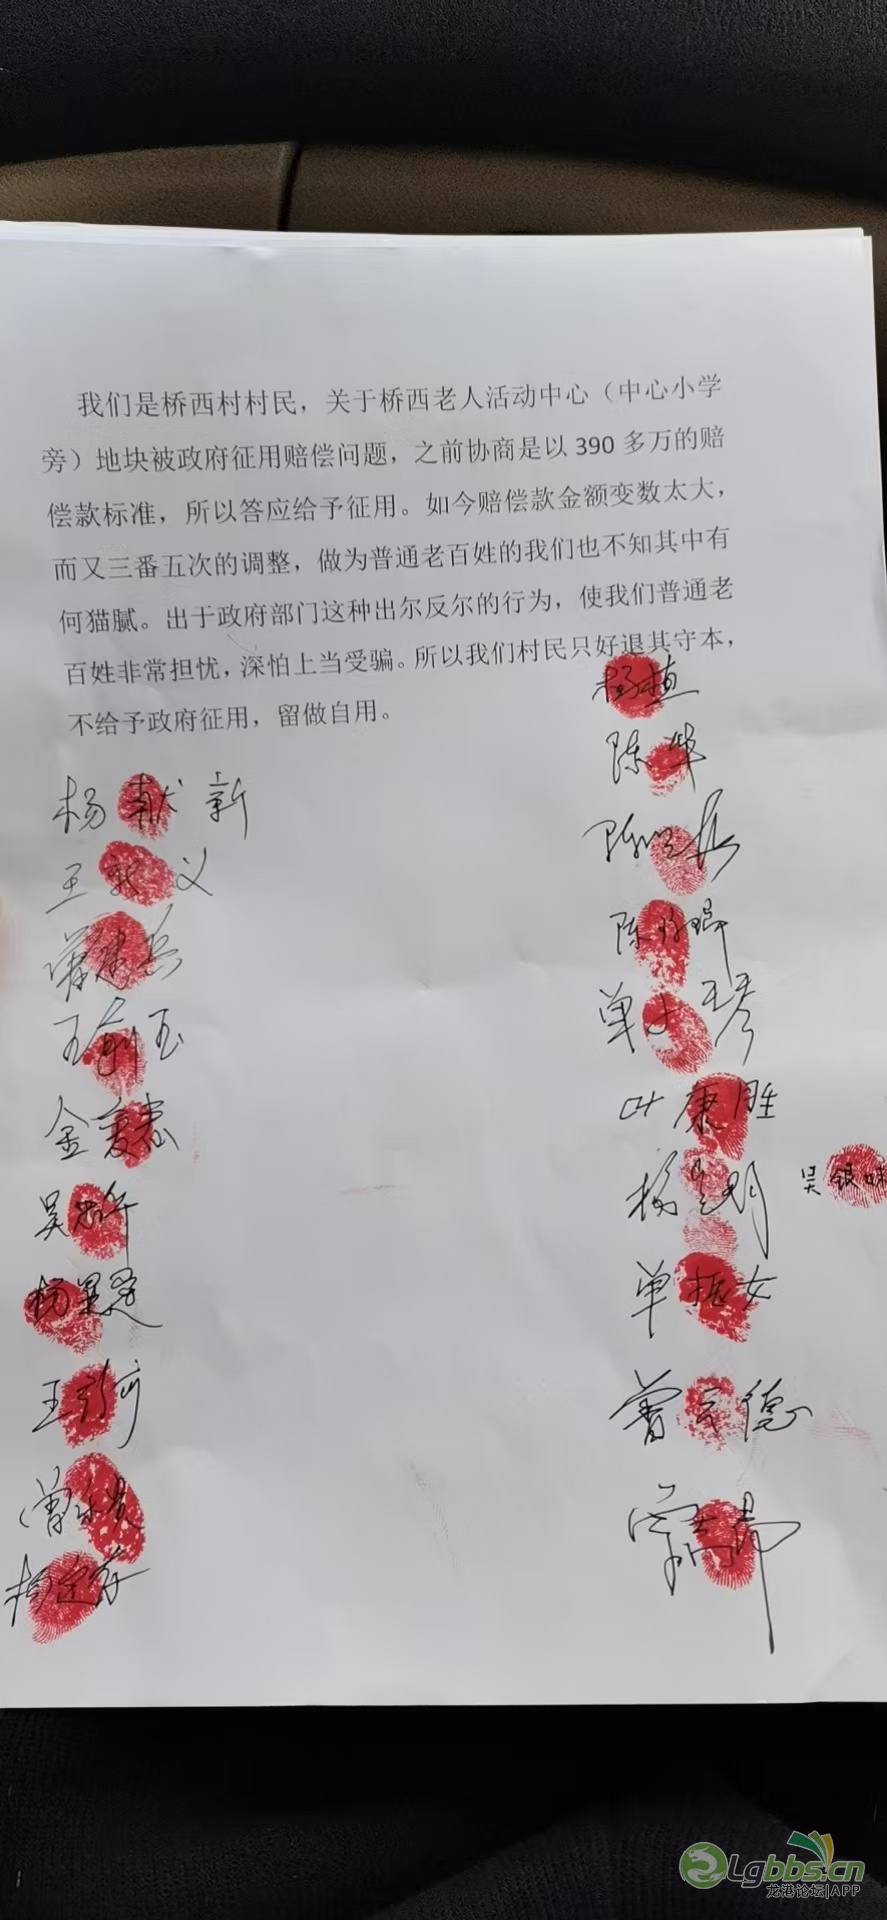 我们是桥西村村民，关于桥西老人活动中心（中心小学
旁）地块被政府征用赔偿问题，之前协商是以390多万的赔
偿款标准，所以答应给予征用。如今赔偿款金额变数太大，
而又三番五次的调整，做为普通老百姓的我们也不知其中有
何猫腻。出于政府部门这种出尔反尔的行为，使我们普通老
百姓非常担忧，深怕上当受骗。所以我们村民只好退其守本，
不给予政府征用，留做自用。
杨植
陈华
杨献新
王 义
陈
单 琴
叶康胜
杨 明
吴银妹
单振女
曾 德
金
吴
杨
王
Lgbbs.cn
龙港论坛|APP